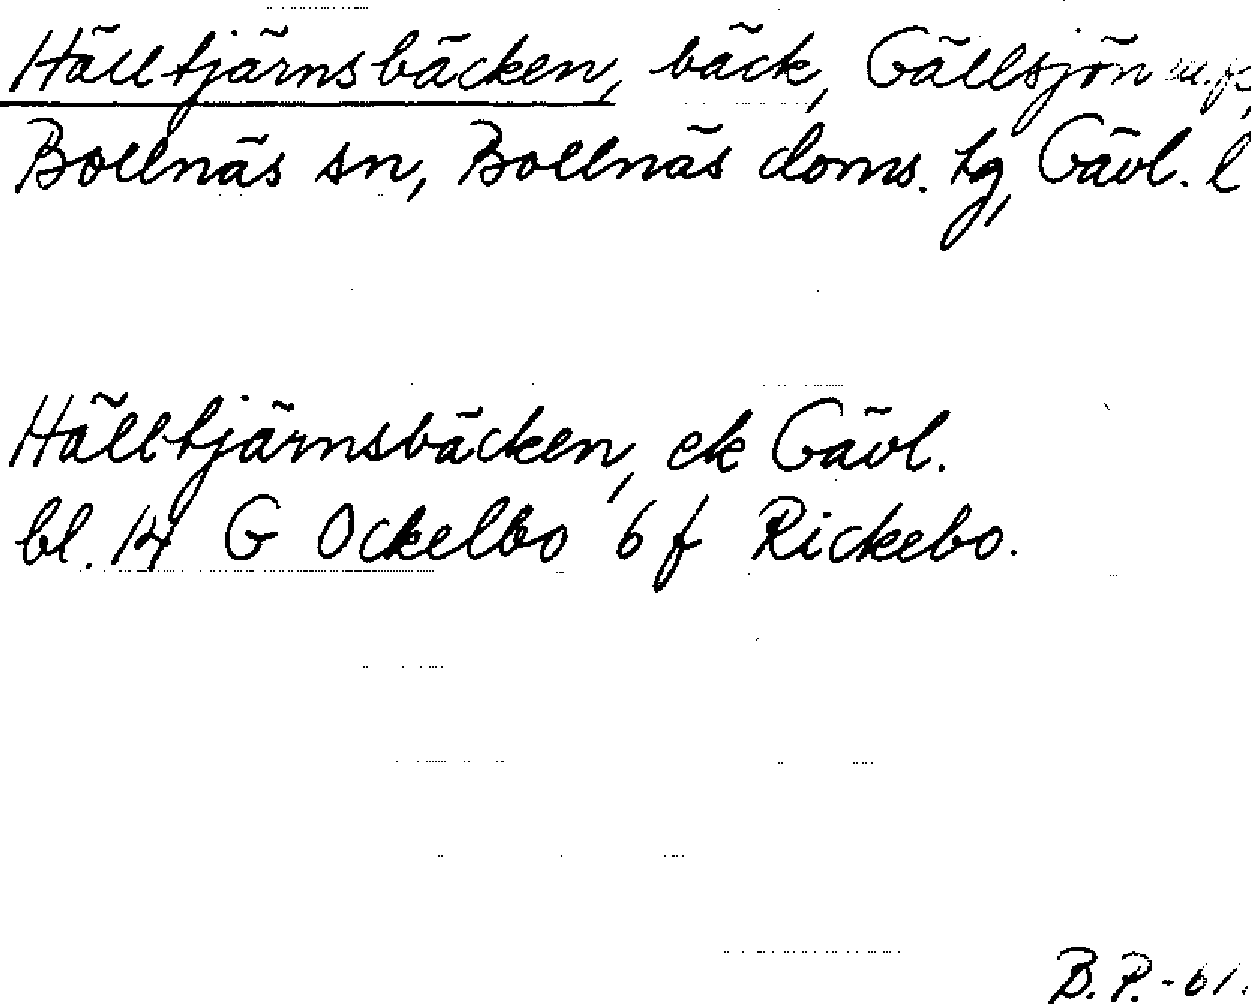 Hälltjärnsbäcken, bäck, Gällsjön
Bollnäs sn, Bollnäs doms. tg, Gävl. l
Hälltjärnsbäcken, ek Gävl.
bl. 14 G Ockelbo 6 f Rickebo.
B.P.-61.